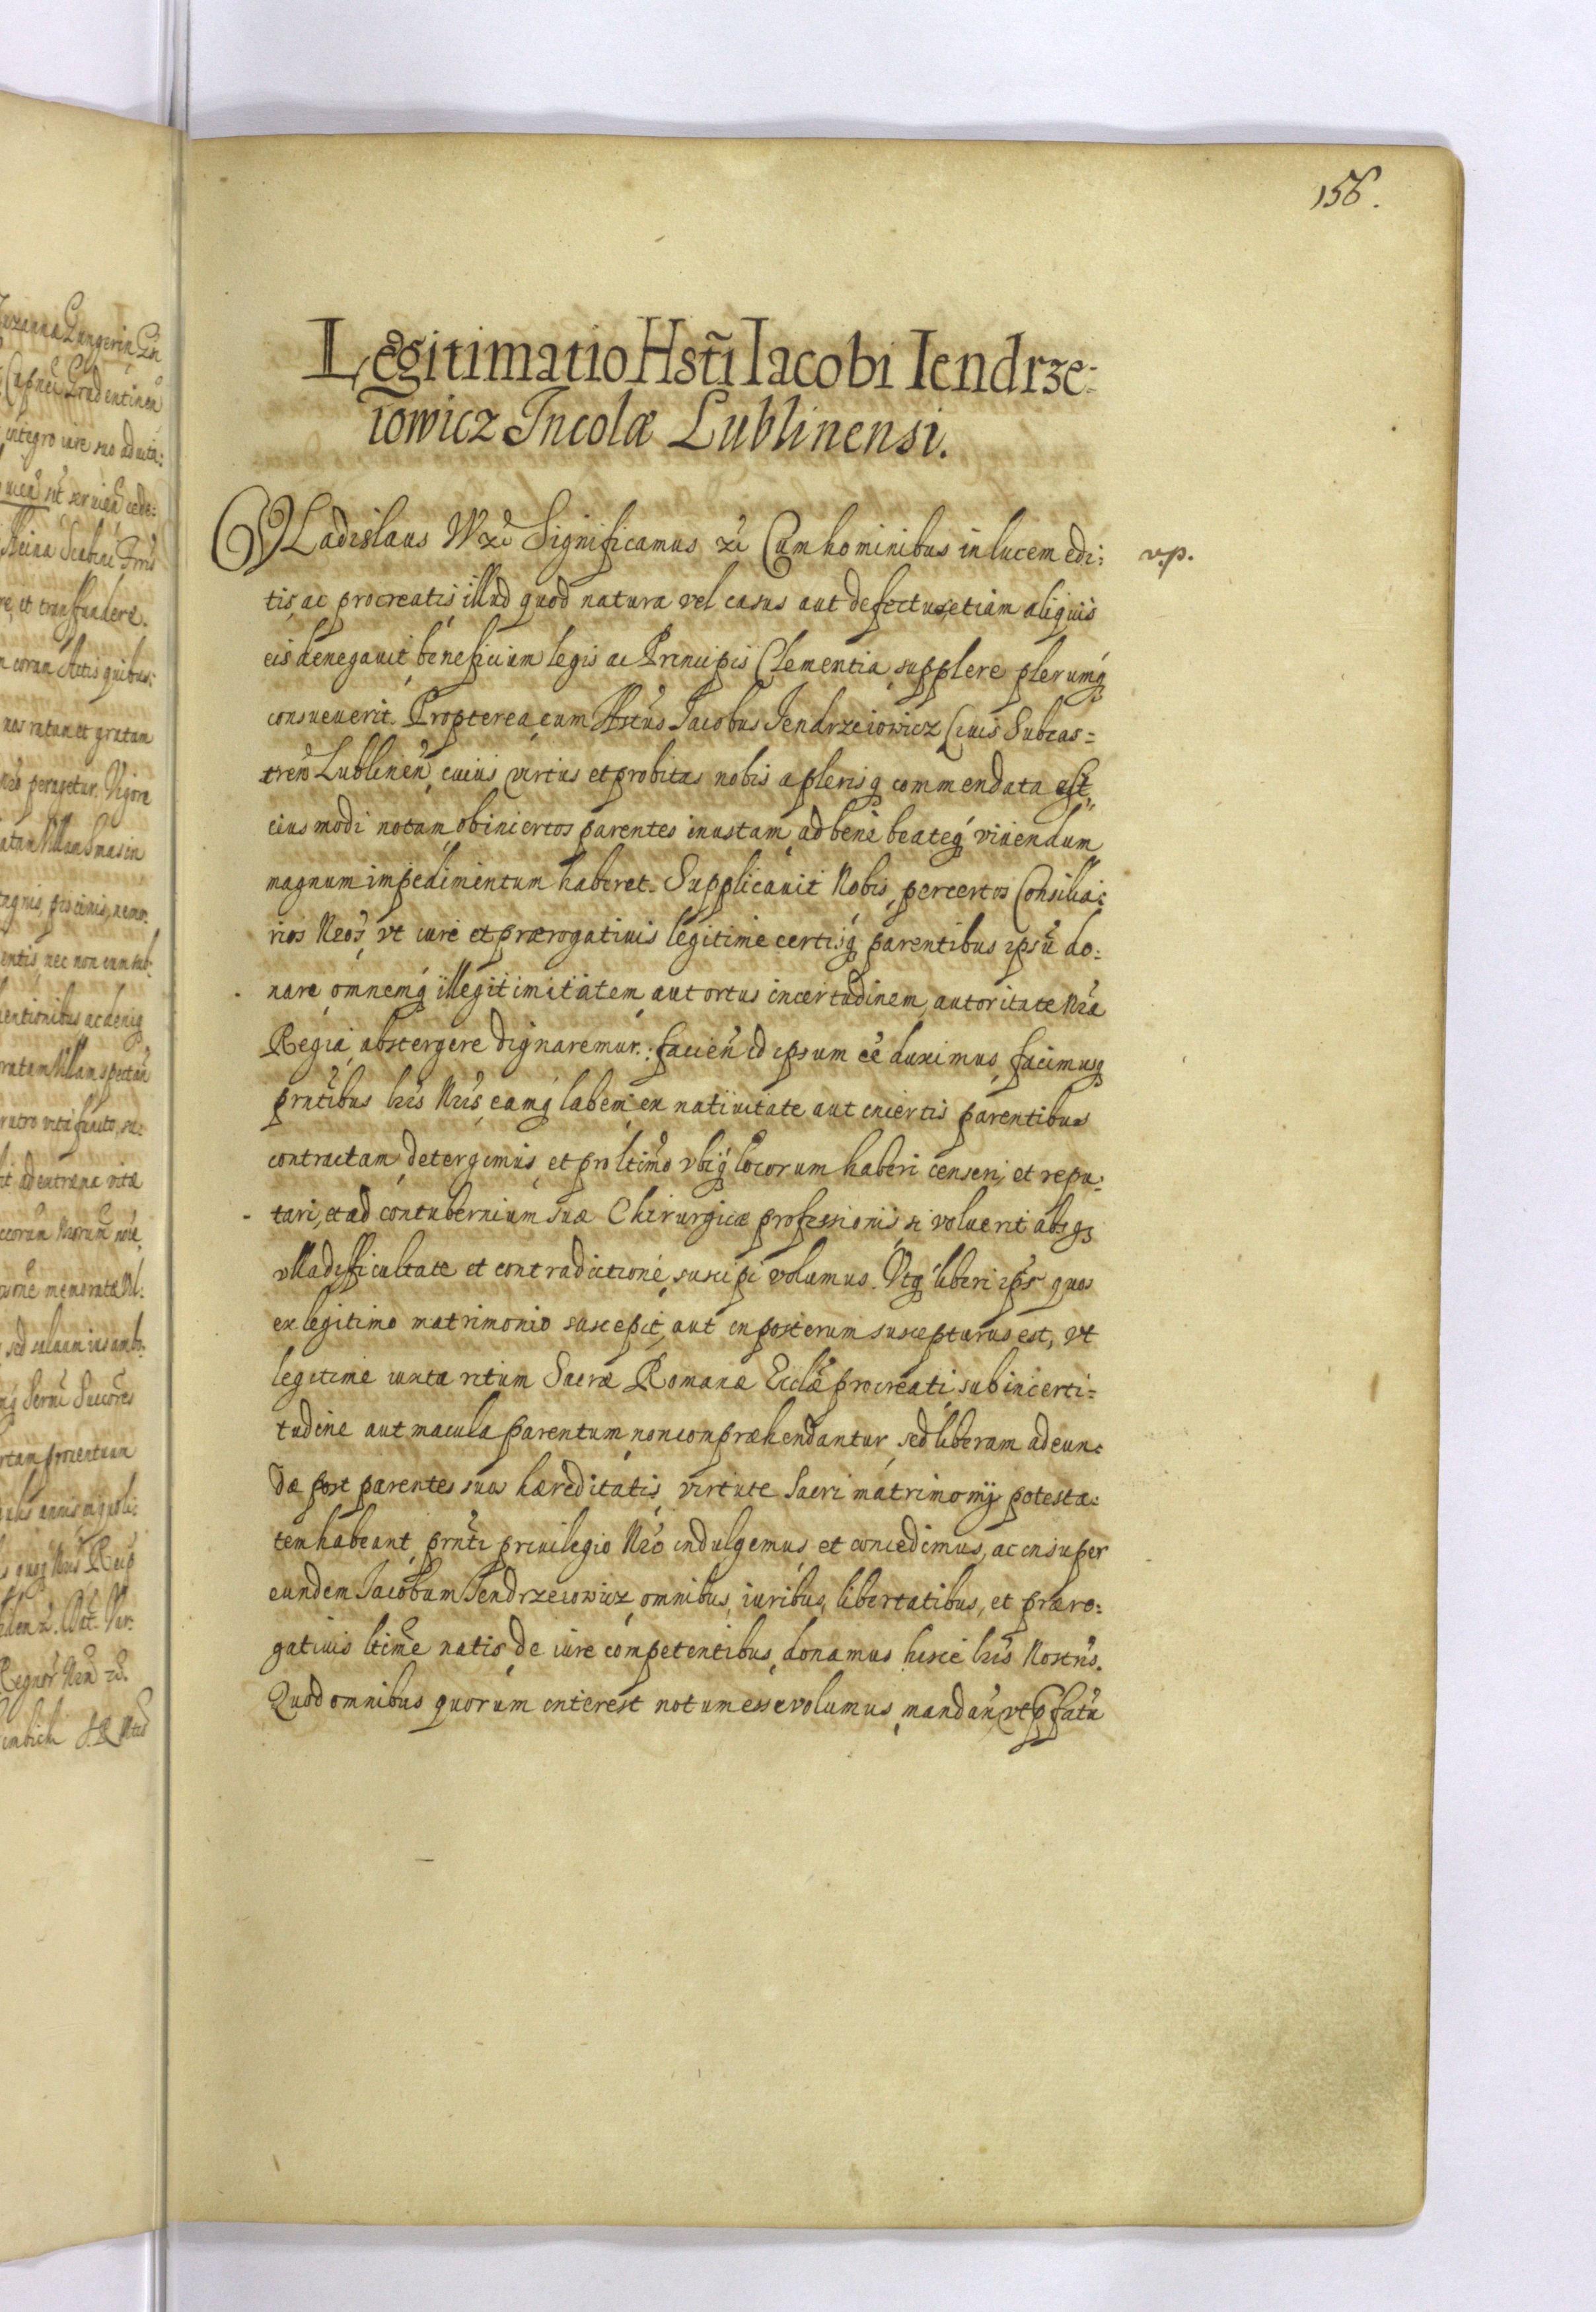 156.
Legitimatio Hsti Iacobi Iendrze:
iowicz Incolæ Lublinensi.
VLadislaus W&c Significamus &c Cum hominibus in lucem edi: v.p.
tis, ac procreatis, illud quod natura vel casus aut defectus etiam aliquis
eis denegauit, beneficium legis ac Principis Clementia, supplere plerumq́
consueuerit. Propterea, cum Hstus Iacobus Iendrzeiowicz Ciuis Subcas=
tren̄ Lublinen̄, cuius virtus et probitas nobis a plerisq commendata est,
eius modi notam, ob incertos parentes inustam, ad bene beateq́ viuendum
magnum impedimentum haberet. Supplicauit Nobis, per certos Consilia:
rios Nr̄os, vt iure et prærogatiuis legitime certisq́ parentibus ipsū do:
nare, omnemq́ illegitimitatem, aut ortus incertudinem, autoritate Nr̄a
Regia, abstergere dignaremur.: facien̄ id ipsum eē duximus, facimusq
prn̄tibus lr̄is Nr̄is, eamq́ labem, ex natiuitate aut incertis parentibus
contractam, detergimus, et pro ltimo vbiq́ locorum haberi censeri, et repu:
tari, et ad contubernium suæ Chirurgicæ professionis, si voluerit absq3
vlla difficultate et contradictione, suscipi volumus. Vtq́ liberi ips̄ quos
ex legitimo matrimonio suscepit, aut in posterum suscepturus est, vt
legitime iuxta ritum Sacræ Romanæ Eccl̄æ procreati, sub incerti=
tudine aut macula parentum, non conpræhendantur, sed liberam adeun:
dæ post parentes suos hæreditatis, virtute Sacri matrimonij potesta:
tem habeant, prn̄ti priuilegio Nr̄o indulgemus, et concedimus, ac insuper
eundem Iacobum Iendrzeiowicz, omnibus, iuribus, libertatibus, et præro:
gatiuis ltime natis, de iure competentibus, donamus hisce lr̄is Nostris.
Quod omnibus quorum interest notum esse volumus, mandan̄, vt p̄fatū